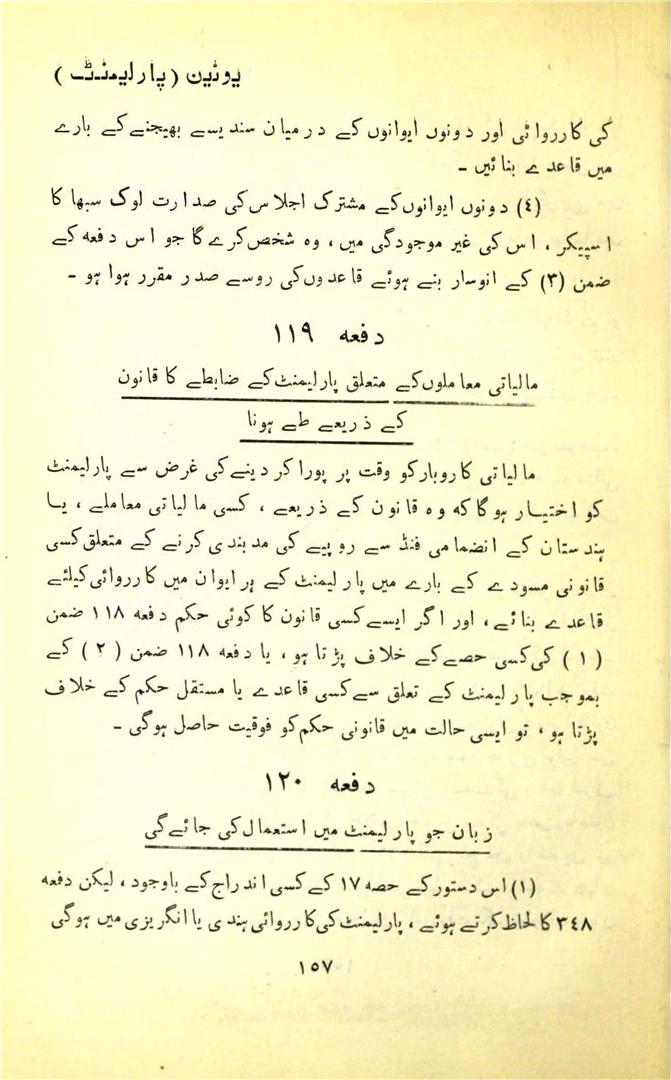 یونین (پارلیمنٹ)
کی کارروائی اور دونوں ایوانوں کے درمیان سندیسے بھیجنے کے بارے
میں قاعدے بنائیں ۔
(٤) دونوں ایوانوں کے مشترک اجلاس کی صدارت لوک سبھا کا
اسپیکر ، اس کی غیر موجودگی میں، وہ شخص کرے گا جو اس دفعہ کے
ضمن (٣) کے انوسار بنے ہوئے قاعدوں کی رو سے صدر مقرر ہوا ہو ۔
دفعہ ١١٩
مالیاتی معاملوں کے متعلق پارلیمنٹ کے ضابطے کا قانون
کے ذریعے طے ہونا
مالیاتی کاروبار کو وقت پر پورا کر دینے کی غرض سے پارلیمنٹ
کو اختیار ہوگا کہ وہ قانون کے ذریعے ، کسی مالیاتی معاملے ، یا
ہندستان کے انضمامی فنڈ سے روپیے کی مد بندی کرنے کے متعلق کسی
قانونی مسودے کے بارے میں پارلیمنٹ کے ہر ایوان میں کارروائی کیلئے
قاعدے بنائے ، اور اگر ایسے کسی قانون کا کوئی حکم دفعہ ١١٨ ضمن
(١) کی کسی حصے کے خلاف پڑتا ہو ، یا دفعہ ١١٨ ضمن (٢) کے
بموجب پارلیمنٹ کے تعلق سے کسی قاعدے یا مستقل حکم کے خلاف
پڑتا ہو ، تو ایسی حالت میں قانونی حکم کو فوقیت حاصل ہوگی ۔
دفعہ ١٢٠
زبان جو پارلیمنٹ میں استعمال کی جائے گی
(١) اس دستور کے حصہ ١٧ کے کسی اندراج کے باوجود ، لیکن دفعہ
٣٤٨ کا لحاظ کرتے ہوئے ، پارلیمنٹ کی کارروائی ہندی یا انگریزی میں ہوگی
١٥٧